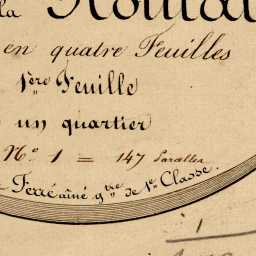 la
en quatre Feuilles
1ère Feuille
un quartier
N° 1 = 147 Parcelles
Ferré aîné gtre de 1re Classe.
1